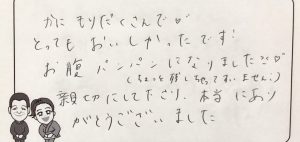 かにもりだくさんで♡
とってもおいしかったです!
お腹パンパンになりました♡
(ちょっと残しちゃってすいません。)
親切にして下さり、本当にあり
がとうございました